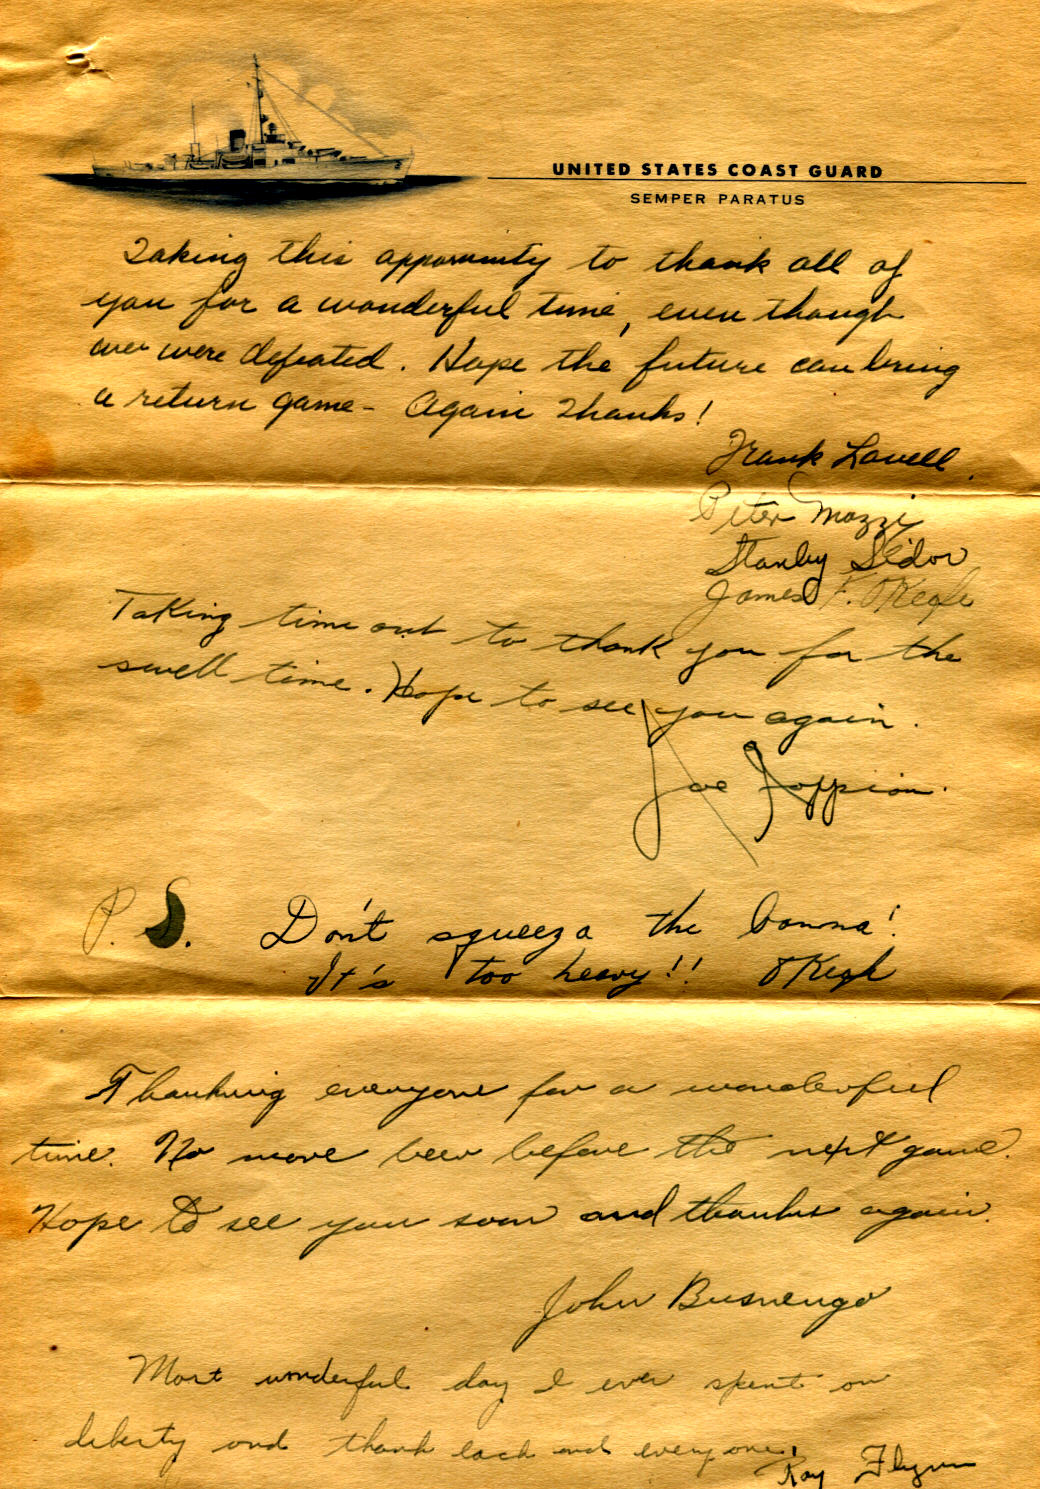 UNITED STATES COAST GUARD
SEMPER PARATUS
Taking this opportunity to thank all of
you for a wonderful time, even though
we were defeated. Hope the future can bring
a return game - Again Thanks!
Frank Lovell
Peter Mozzi
Stanley Sidor
James F. O'Keefe
Taking time out to thank you for the
swell time. Hope to see you again.
Joe
P.S. Don't squeeza the banna!
It's too heavy!! O'Keefe
Thanking everyone for a wonderful
time. No more beer before the next game.
Hope to see you soon and thanks again.
John Busnengo
Most wonderful day I ever spent on
liberty and thank each and everyone.
Ray Flynn